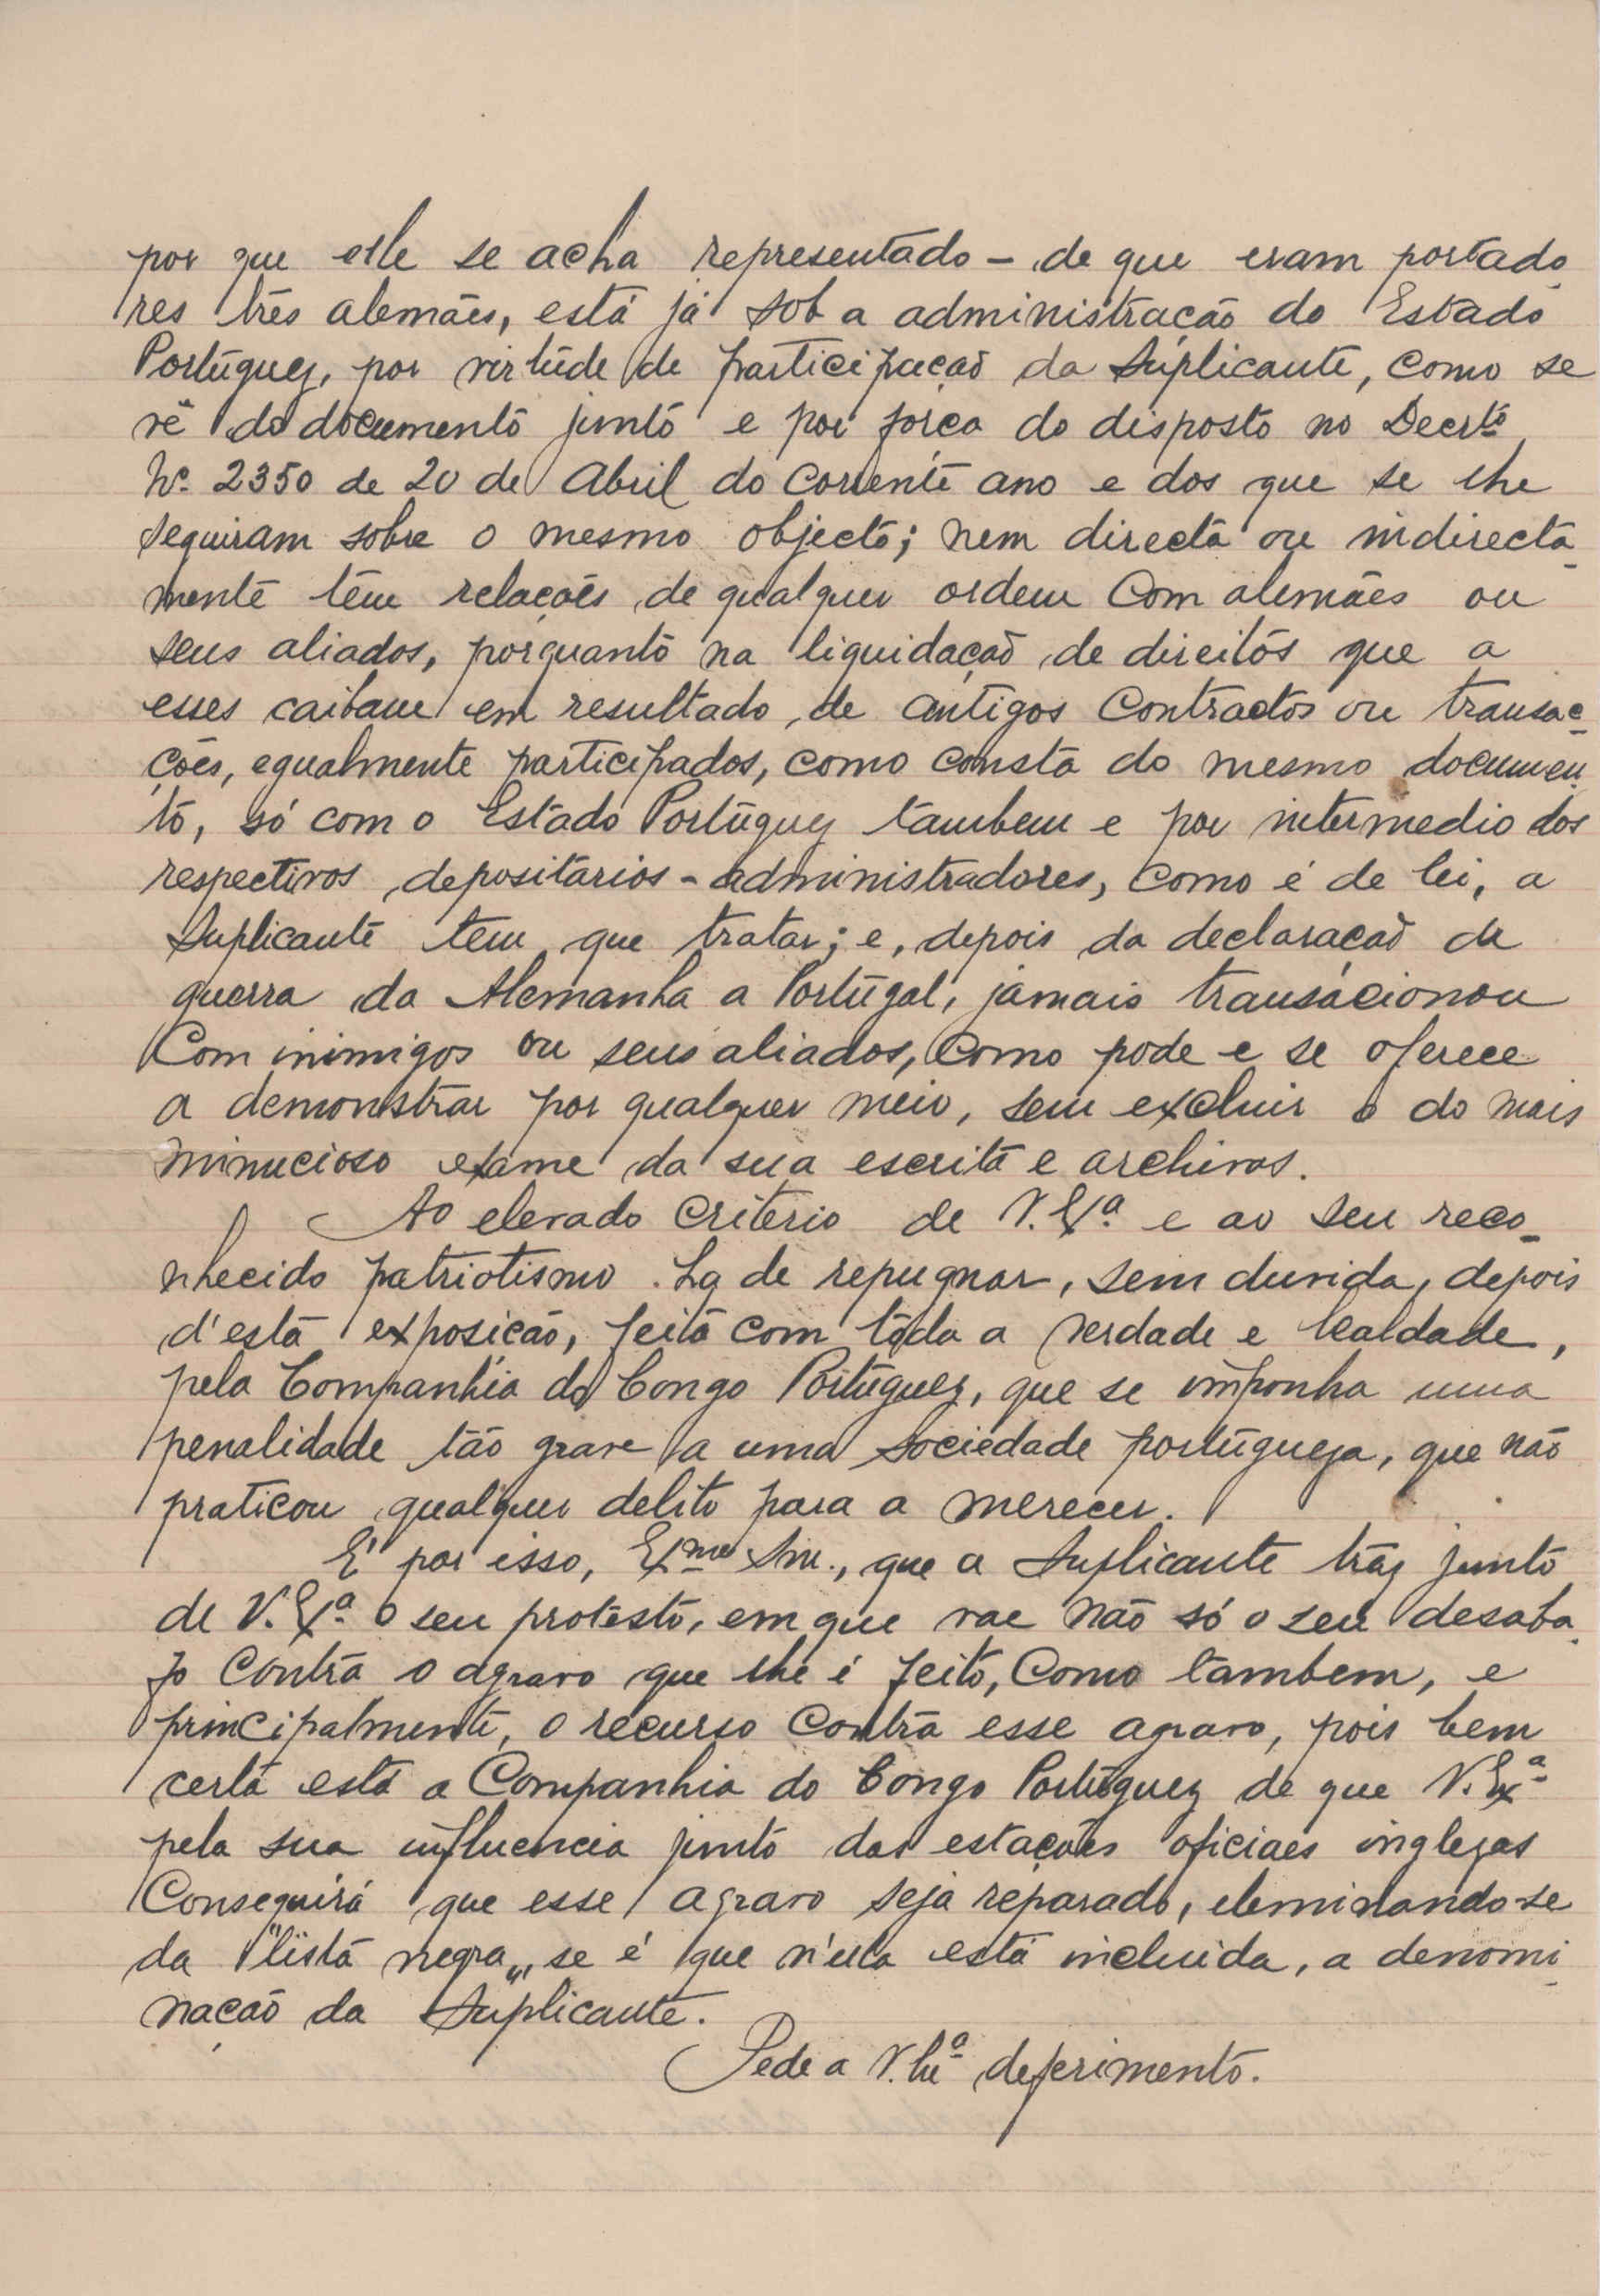 por que elle se acha representado - de que eram portado
res três alemães, está já sob a administração do Estado
Portuguez, por virtude de participação da Suplicante, como se
vê do documento junto e por força do disposto no Decrtº
Nº 2350 de 20 de Abril do corrente ano e dos que se lhe
seguiram sobre o mesmo objecto; nem directa ou indirecta-
mente têm relações de qualquer ordem com alemães ou
seus aliados, porquanto na liquidação de direitos que a
esses caibam em resultado de antigos contractos ou transac-
ções, egualmente participados, como consta do mesmo documen-
to, só com o Estado Portuguez tambem e por intermedio dos
respectivos depositarios-administradores, como é de lei, a
Suplicante tem que tratar; e, depois da declaração de
guerra da Alemanha a Portugal, jamais transácionou
com inimigos ou seus aliados, como pode e se oferece
a demonstrar por qualquer meio, sem excluir o do mais
minucioso exame da sua escrita e archivos.
Ao elevado criterio de V. Exª e ao seu reco-
nhecido patriotismo ha de repugnar, sem duvida, depois
d'esta exposição, feita com tôda a verdade e lealdade,
pela Companhia do Congo Portuguez, que se imponha uma
penalidade tão grave a uma sociedade portugueza, que não
praticou qualquer delito para a merecer.
E' por isso, Exmo Snr., que a Suplicante tráz junto
de V. Exª o seu protesto, em que vae não só o seu desaba-
fo contra o agravo que lhe é feito, como tambem, e
principalmente, o recurso contra esse agravo, pois bem
certa está a Companhia do Congo Portuguez de que V. Exª
pela sua influencia junto das estações oficiaes inglezas
conseguirá que esse agravo seja reparado, eleminando-se
da "lista negra", se é que n'ela está incluida, a denomi-
nação da Suplicante.
Pede a V. Exª deferimento.